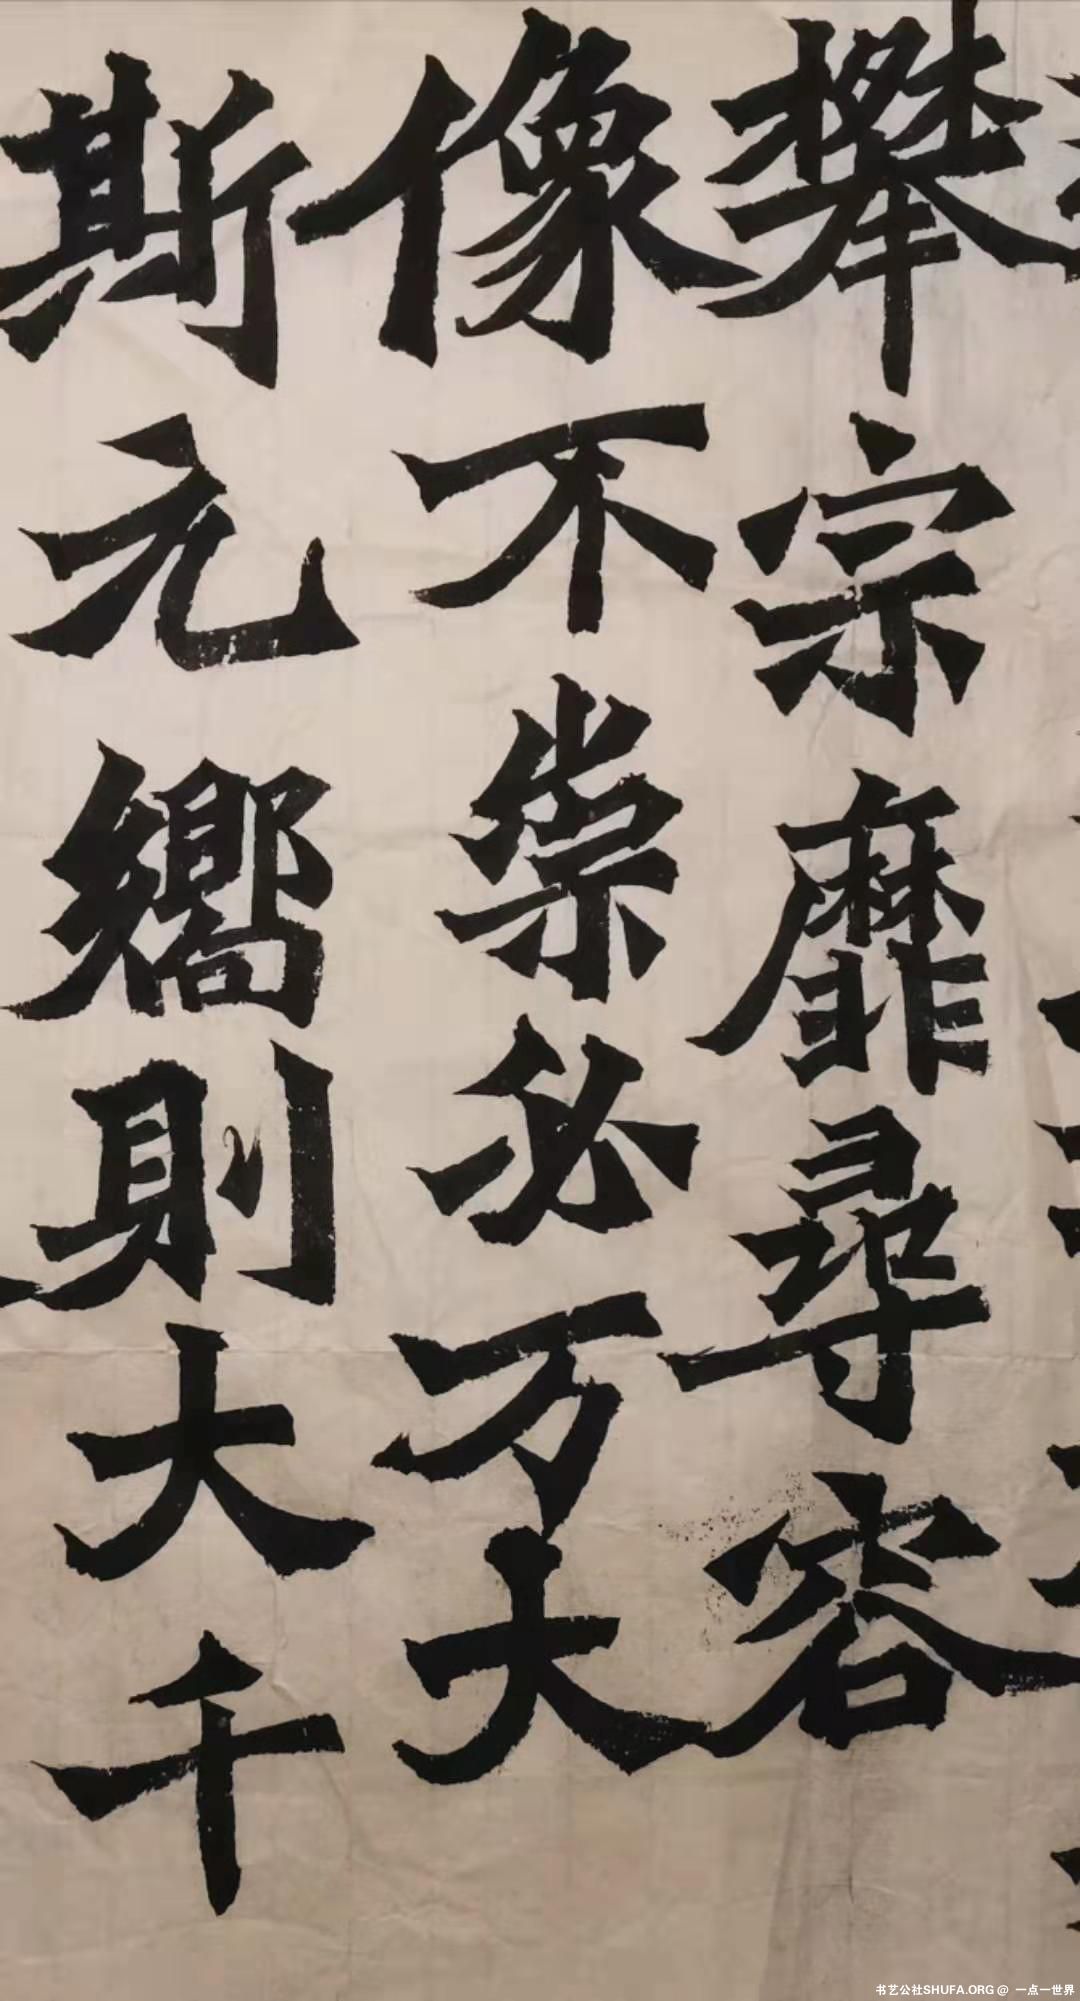 攀宗靡尋容
像不崇必万大
斯元嚮則大千
书艺公社SHUFA.ORG @ 一点一世界